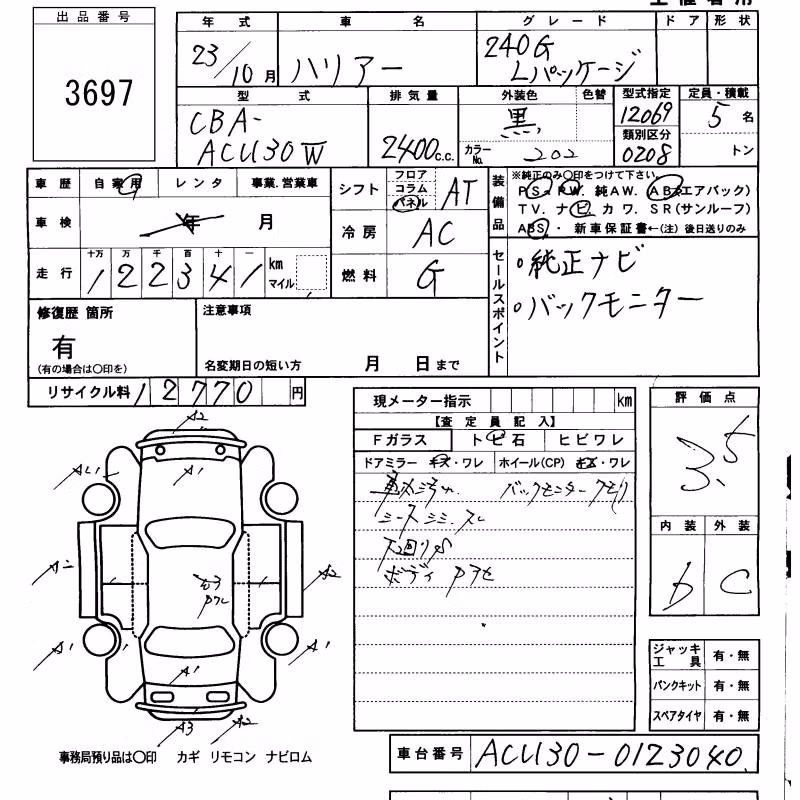 出品番号
3697
年式 車名 グレード ドア 形状
23/10月 ハリアー 240G Lパッケージ
型式 排気量 外装色 色替 型式指定 定員・積載
CBA-ACU30W 2400c.c. 黒 12069 5名
カラーNo. 202 類別区分 0208 トン
車歴 自家用 レンタ 事業.営業車
車検 年 月
走行 十万 万 千 百 十 一
122341 km マイル
シフト フロア コラム パネル AT
冷房 AC
燃料 G
装備品 ※純正のみ〇印をつけて下さい
PS. PW. 純AW. AB(エアバック)
TV. ナビ. カワ. SR(サンルーフ)
ABS. ・ 新車保証書←(注) 後日送りのみ
セールスポイント
・純正ナビ
・バックモニター
修復歴 箇所
有
(有の場合は〇印を)
注意事項
名変期日の短い方 月 日まで
リサイクル料 12770 円
現メーター指示 km
【査定員記入】
Fガラス トビ石 ヒビワレ
ドアミラー キズ・ワレ ホイール(CP) キズ・ワレ
バックモニター クモリ
シートシミ.スレ
下回りS
ボディ
評価点
3.5
内装 外装
b C
A2
A1
A1
A2
A2
A1
A1
A1
A3 A2
ジャッキ工具 有・無
パンクキット 有・無
スペアタイヤ 有・無
事務局預り品は〇印 カギ リモコン ナビロム
車台番号 ACU30-0123040